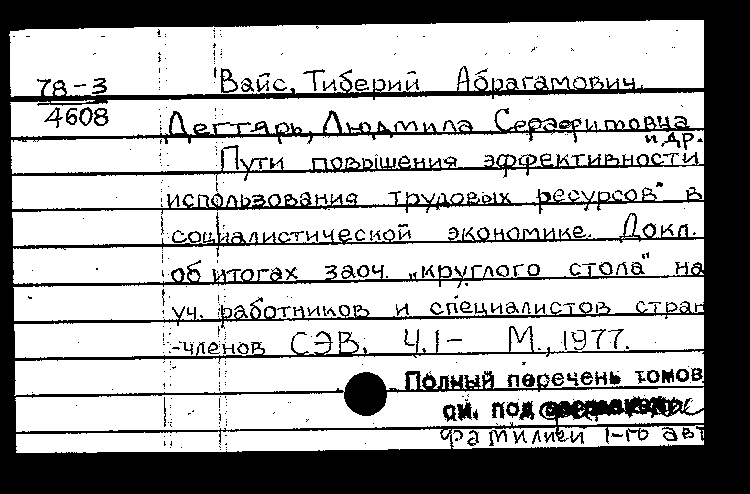 78-3
4608
Вайс, Тиберий Абрагамович.
Дегтярь, Людмила Серафимовна
и др.
Пути повышения эффективности
использования трудовых ресурсов" в
социалистической экономике. Докл.
об итогах заоч. „круглого стола" на
уч. работников и специалистов стран
-членов СЭВ. Ч.1- М., 1977.
Полный перечень томов
см. под
фамилией 1-го авт